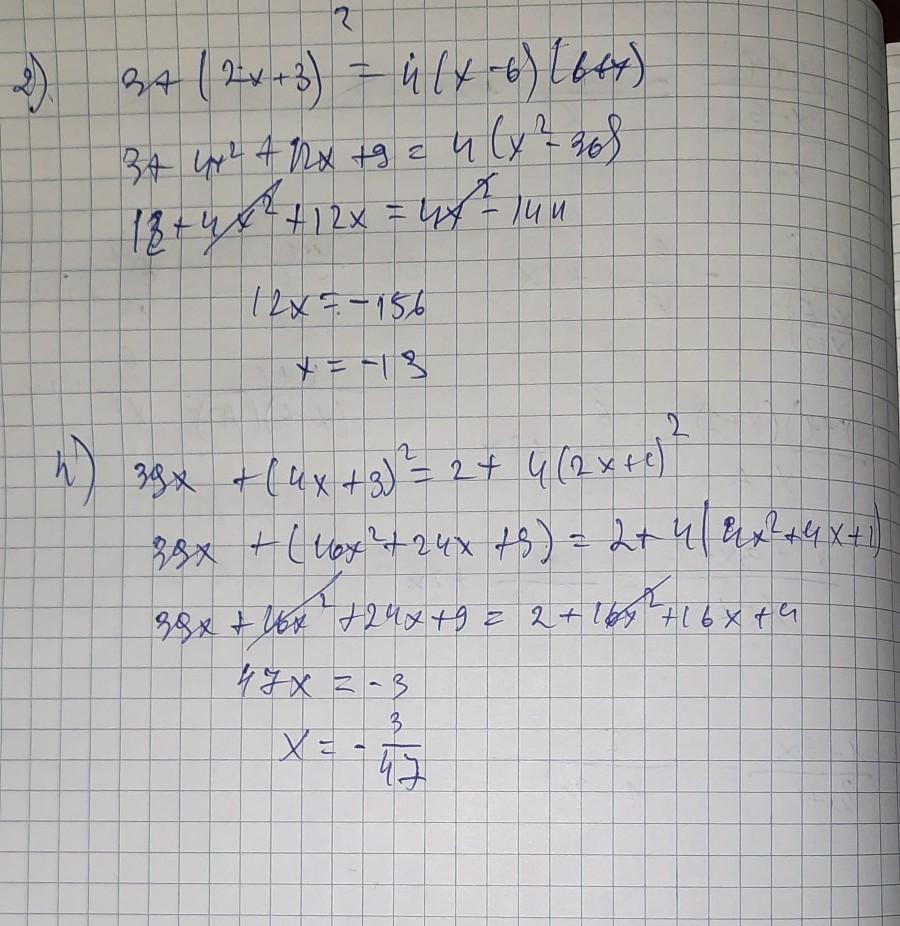 2). 3+(2x+3)² = 4(x-6)(6+x)
3+ 4x² + 12x +9 = 4(x²-36)
12+4x²+12x = 4x²-144
12x = -156
x = -13
4) 39x +(4x+3)² = 2+ 4(2x+1)²
39x +(16x²+24x+9) = 2+4(4x²+4x+1)
39x+16x²+24x+9 = 2+16x²+16x+4
47x = -3
x = - 3/47